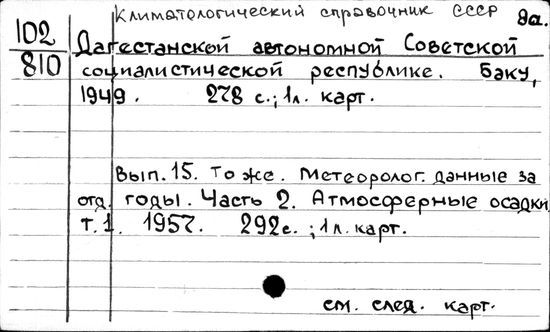 Климатологический справочник СССР 9а.
102
810
Дагестанской автономной Советской
социалистической республике. Баку,
1949. 278 с.; 1л. карт.
Вып. 15. То же. Метеоролог. данные за
отд. годы. Часть 2. Атмосферные осадки,
т. 1. 1957. 292с. ; 1 л. карт.
см. след. карт.